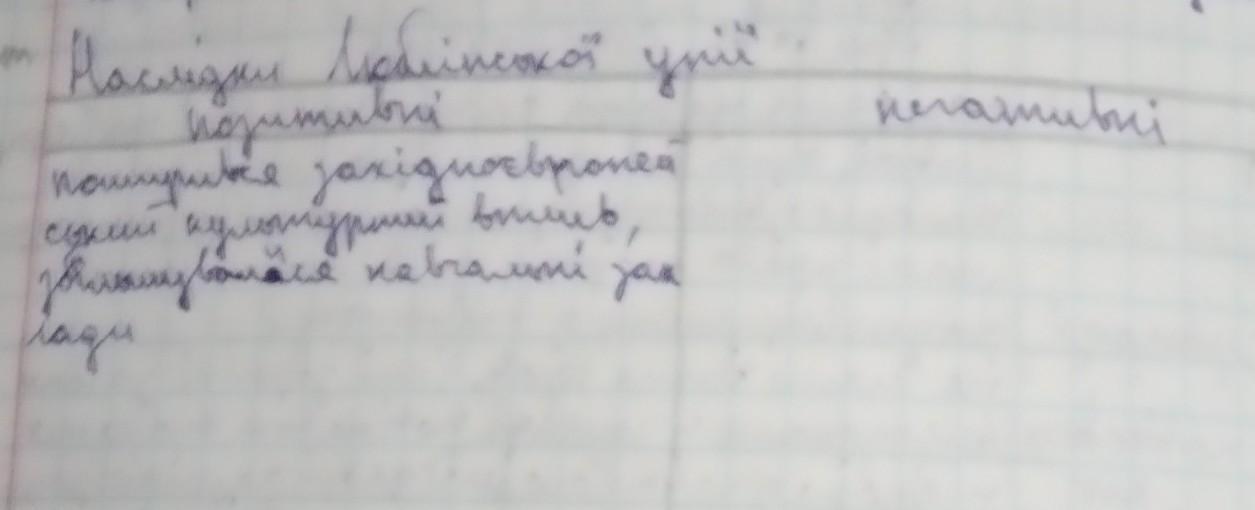 Наслідки Люблінської унії
позитивні негативні
поширився західноєвропей
ський культурний вплив,
збільшувалися навчальні зак
лади